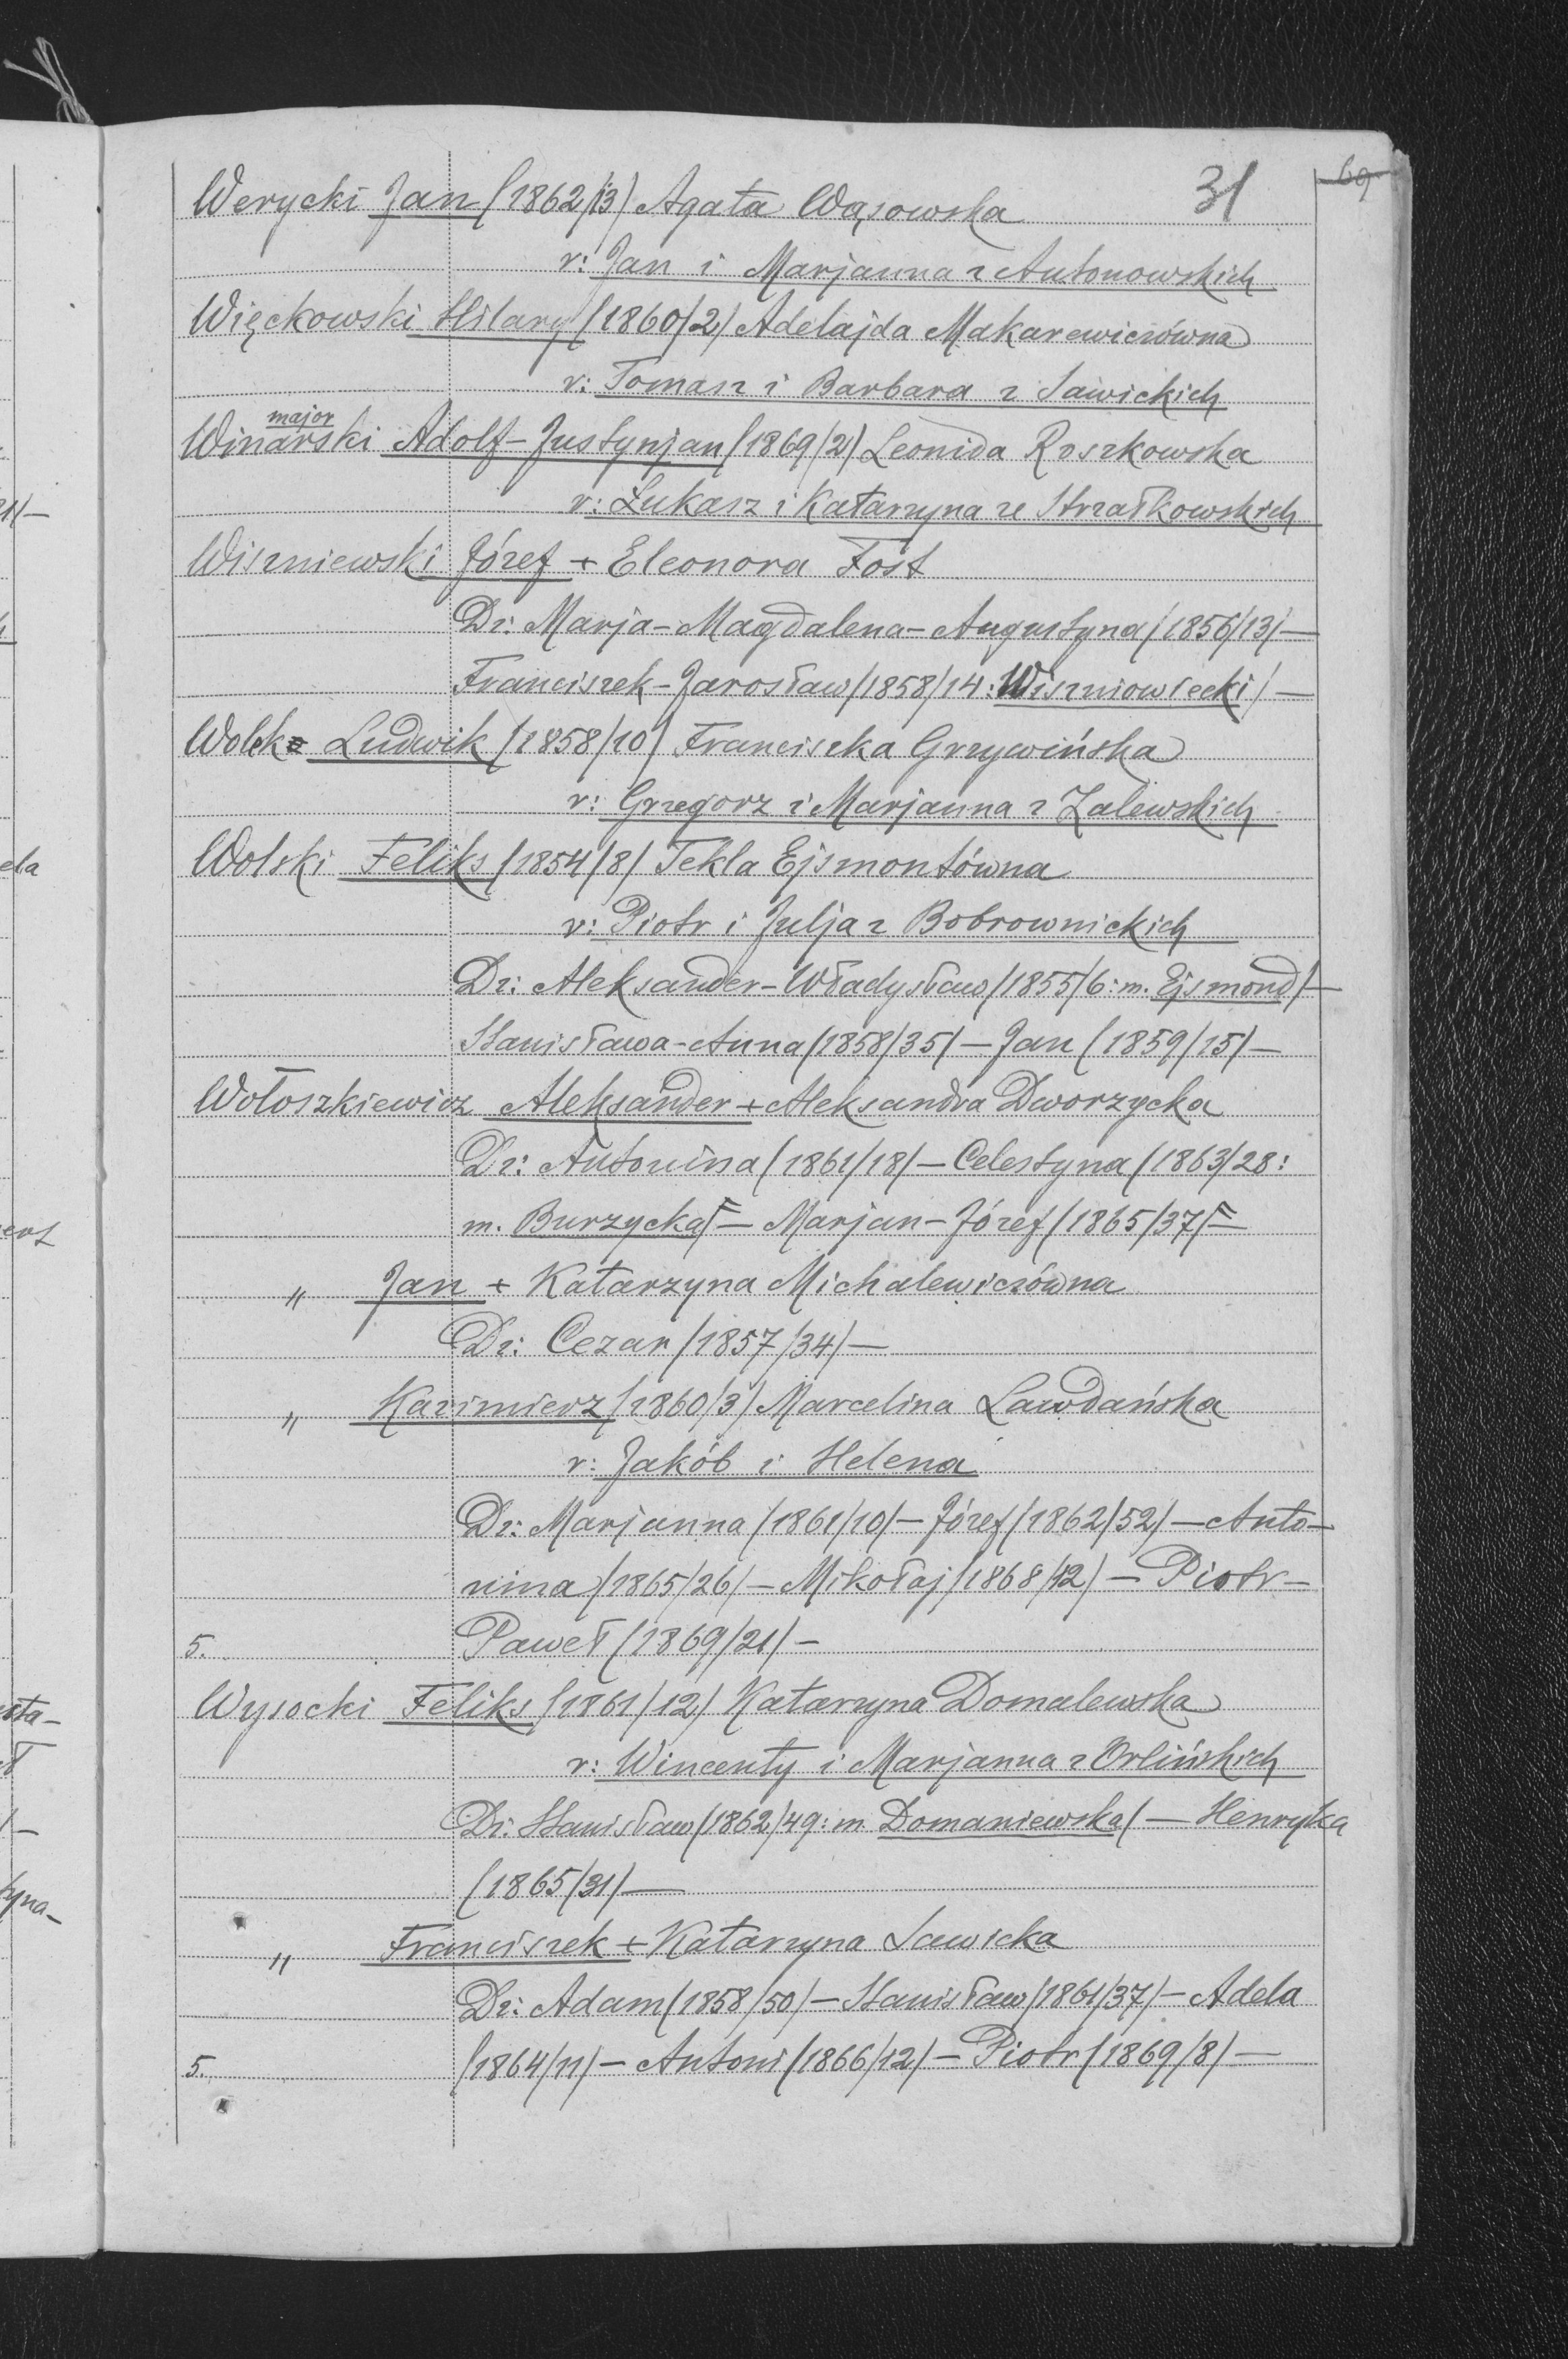 31 69
Werycki Jan (1862/13) Agata Wąsowska
r: Jan i Marjanna z Antonowskich
Więckowski Hilary (1860/2) Adelajda Makarewiczówna
r: Tomasz i Barbara z Sawickich
major
Winarski Adolf-Justynjan (1869/2) Leonida Roszkowska
r: Łukasz i Katarzyna ze Strzałkowskich
Wiszniewski Józef + Eleonora Fost
Dz: Marja-Magdalena-Augustyna (1856/13) —
Franciszek-Jarosław (1858/14: Wiszniowiecki) —
Wolck Ludwik (1858/10) Franciszka Grzywińska
r: Grzegorz i Marjanna z Zalewskich
Wolski Feliks (1854/8) Tekla Ejsmontówna
r: Piotr i Julja z Bobrownickich
Dz: Aleksander-Władysław (1855/6: m. Ejsmond) —
Stanisława-Anna (1858/35) — Jan (1859/15) —
Wołoszkiewicz Aleksander + Aleksandra Dworzycka
Dz: Antonina (1861/18) — Celestyna (1863/28:
m. Burzycka) — Marjan-Józef (1865/37) —
„ Jan + Katarzyna Michalewiczówna
Dz: Cezar (1857/34) —
„ Kazimierz (1860/3) Marcelina Lawdańska
r: Jakób i Helena
Dz: Marjanna (1861/10) — Józef (1862/52) — Anto-
nina (1865/26) — Mikołaj (1868/12) — Piotr-
5. Paweł (1869/21) —
Wysocki Feliks (1861/12) Katarzyna Domalewska
r: Wincenty i Marjanna z Orlińskich
Dz: Stanisław (1862/49: m. Domaniewska) — Henryka
(1865/31) —
„ Franciszek + Katarzyna Sawicka
Dz: Adam (1858/50) — Stanisław (1861/37) — Adela
5. (1864/11) — Antoni (1866/12) — Piotr (1869/8) —